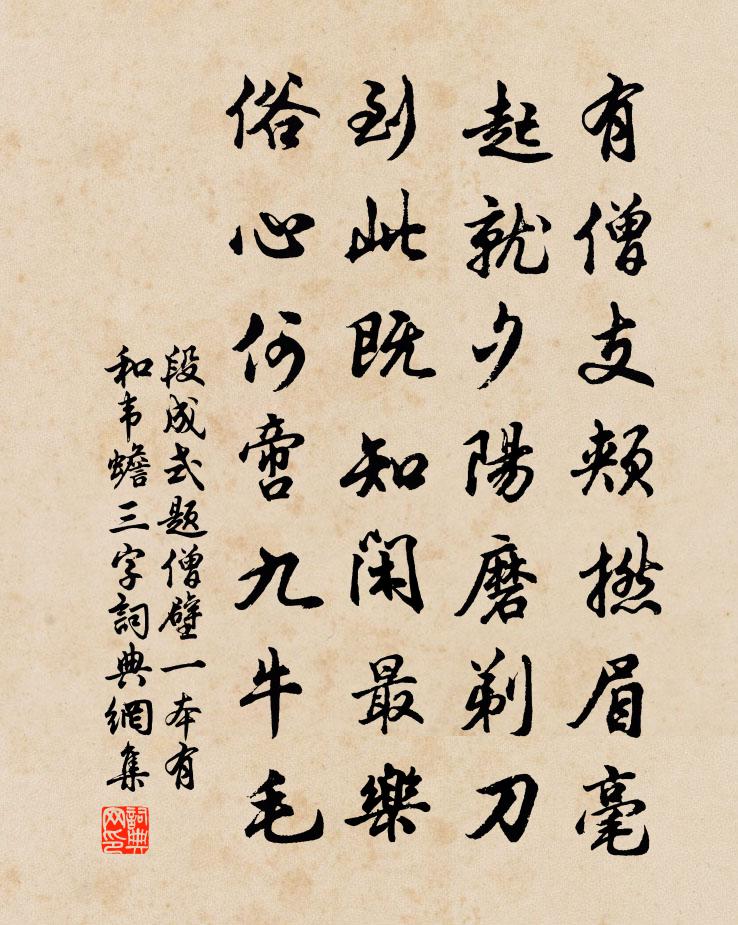 有僧支頰撚眉毫
起就夕陽磨剃刀
到此既知閑最樂
俗心何啻九牛毛
段成式题僧壁一本有
和韦蟾三字詞典網集
詞典网印